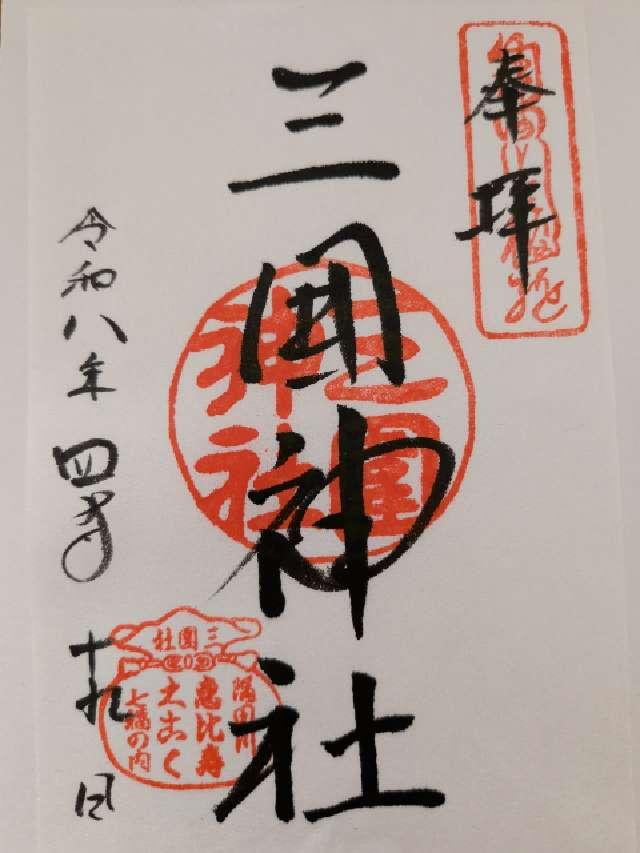 奉拝
三囲神社
三囲神社
令和八年 四月 十九日
三囲社
隅田川
恵比寿
大こく
七福の内